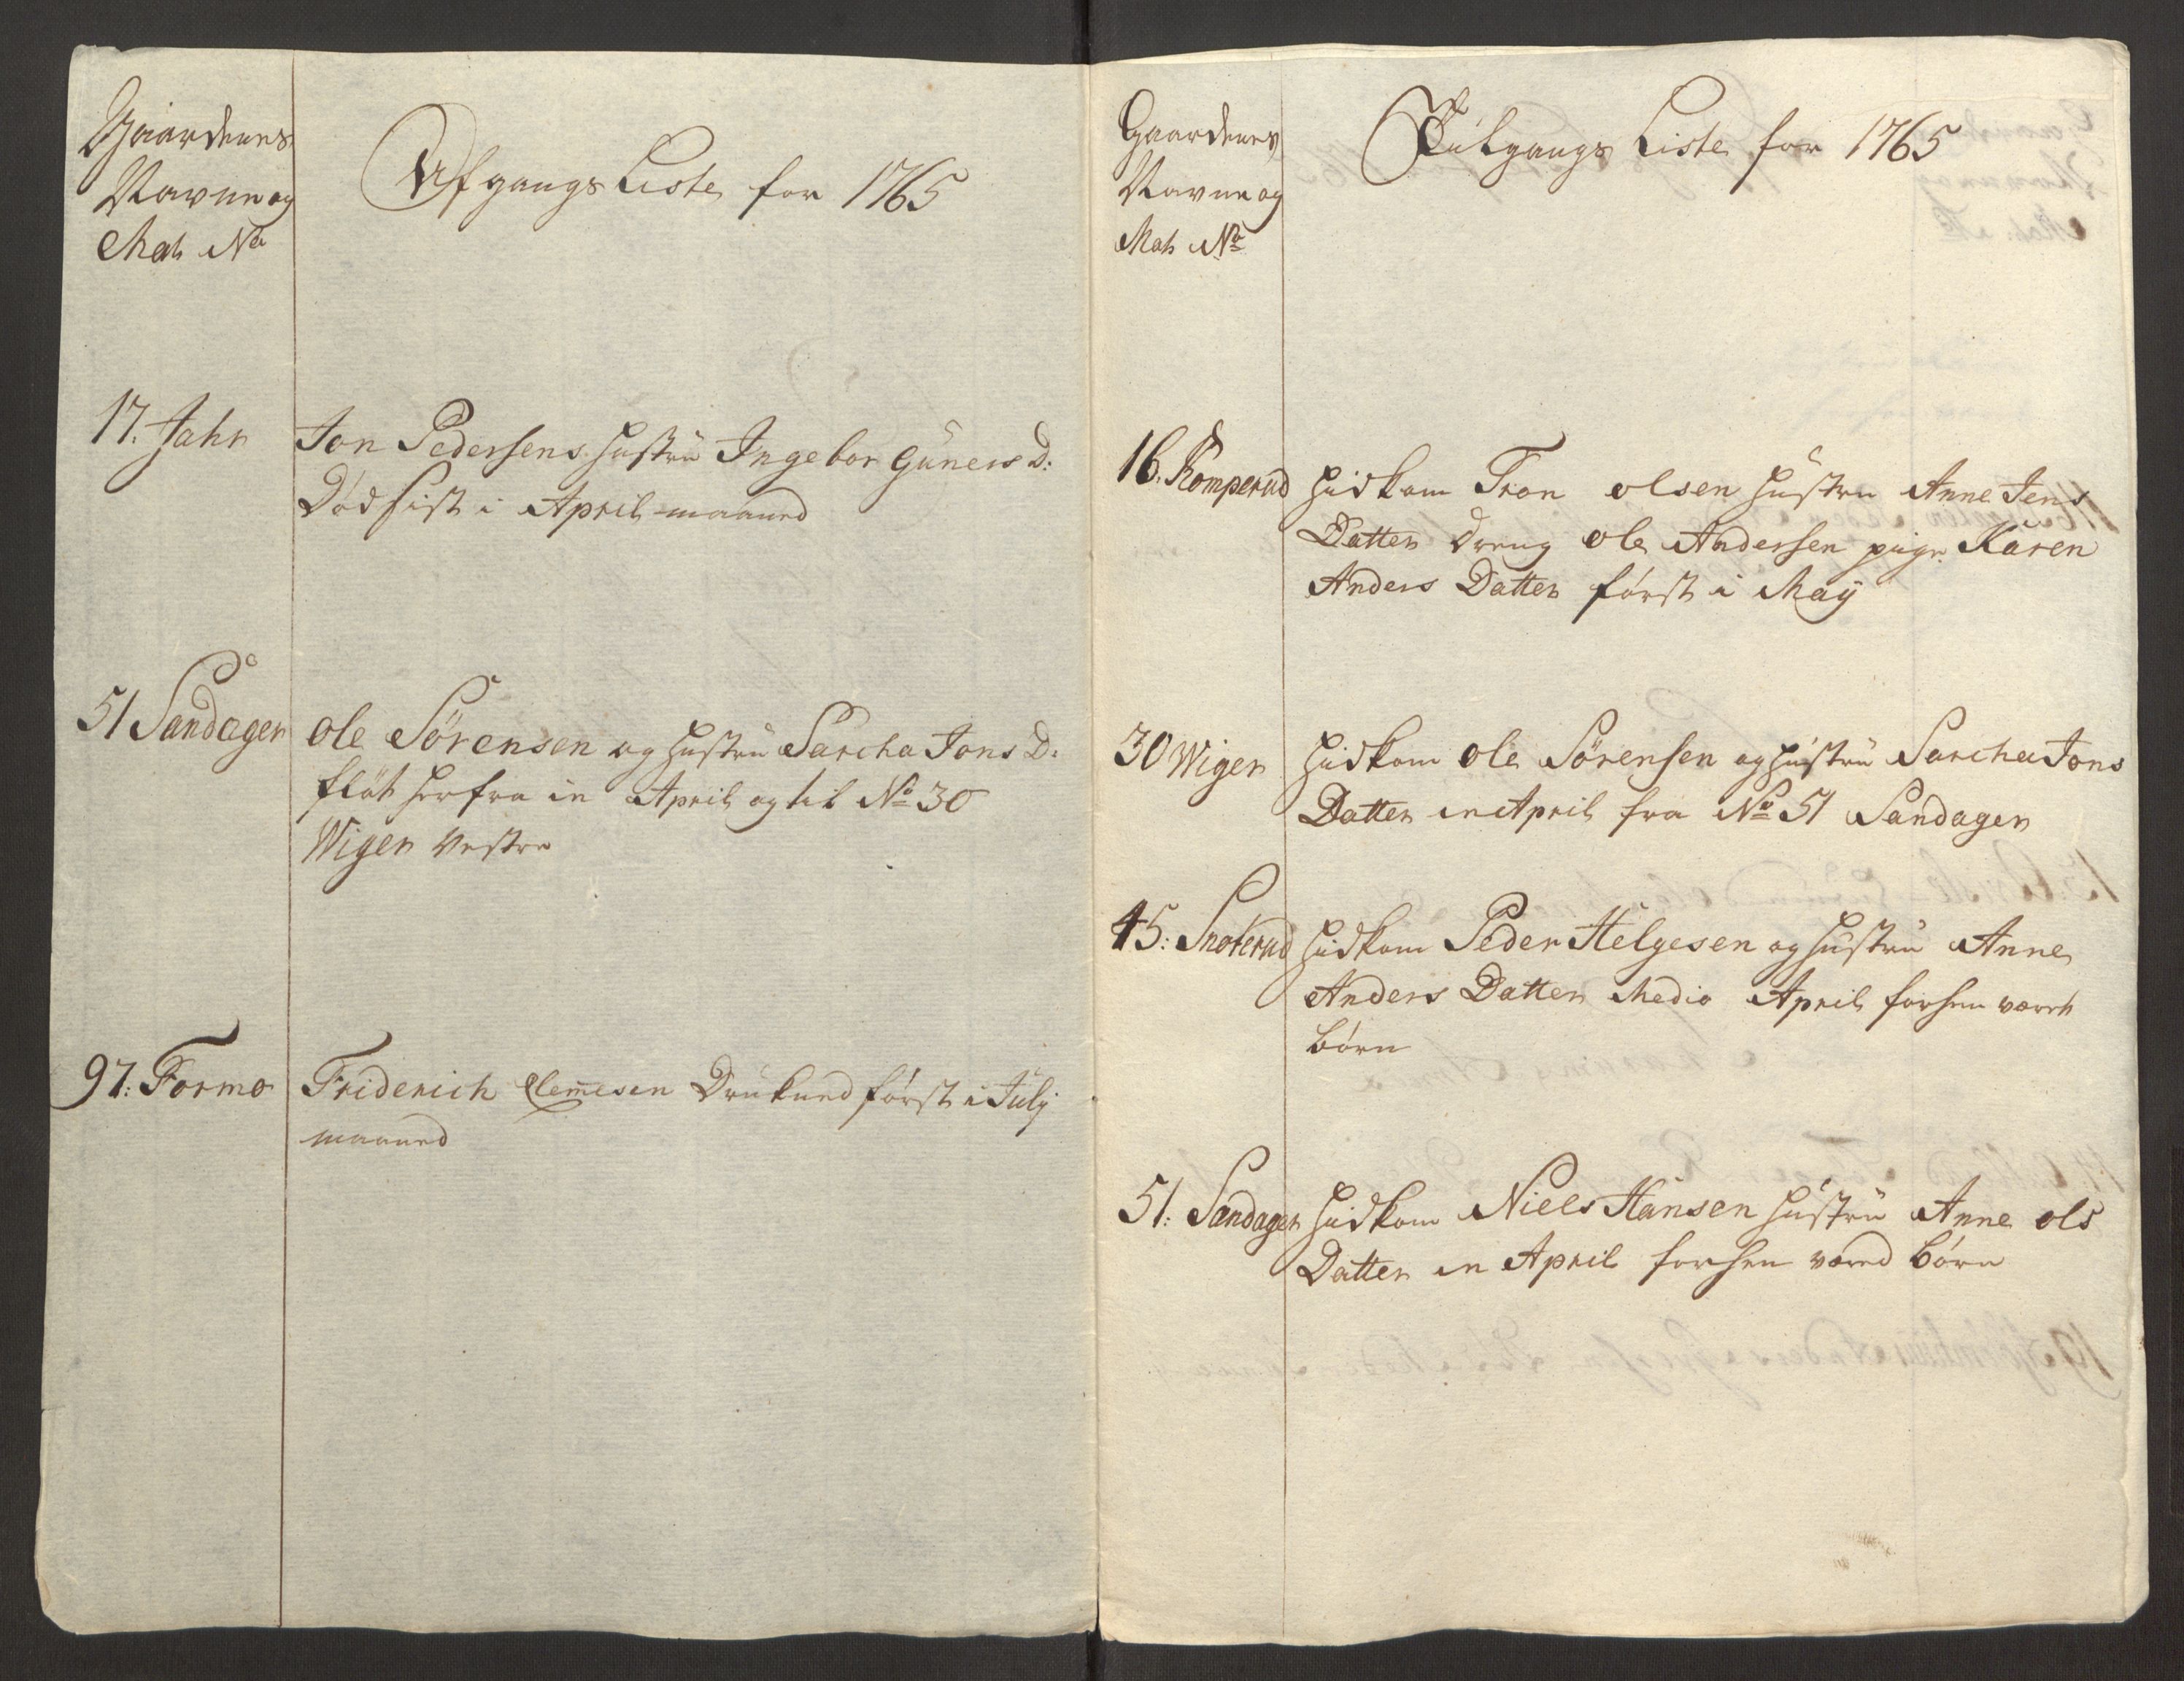 Gaardenes
Navne og
Mat No
Afgangs Liste for 1765
17. Jahr
Jon Pedersens hustrü Ingebor Güners D:
Död sist i April maaned
51 Sandager
Ole Sörensen og hustrü Sarcha Jons D:
flöt herfra in April og til No 30
Wiger Vestre
97: Formo
Friderich Clem̅esen Drukned först i Julj
maaned
Gaardenes
Navne og
Mat No
Tilgangs Liste for 1765
16. Romperud
hidkom Tron olsen hüstru Anne Jens
Datter dreng Ole Andersen pige Karen
Anders Datter først i Maÿ
30 Wiger
hidkom Ole Sörensen og hüstrü Sarcha Jons
Datter in April fra No 51 Sandager
45: Snoterud
hidkom Peder Helgesen og hüstrü Anne
Anders Datter Medio April forhen været
börn
51: Sandager
hidkom Niels Hansen hüstrü Anne Ols
Datter in April forhen vared börn